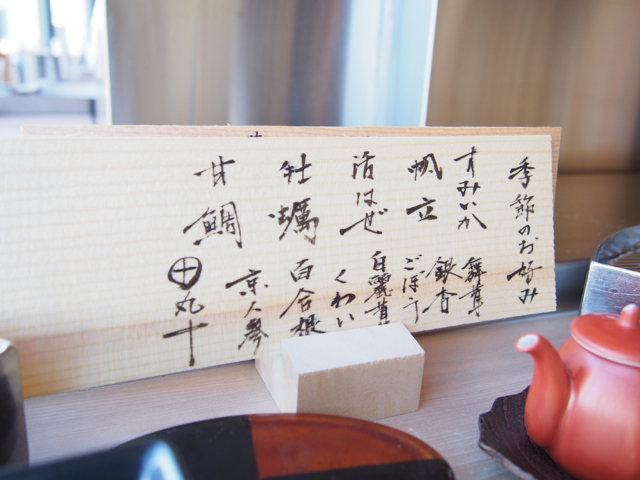 季節のお好み
すみいか
舞茸
帆立
銀杏
ごぼう
活はぜ
白麗茸
くわい
牡蠣
百合根
京人参
甘鯛
田丸十